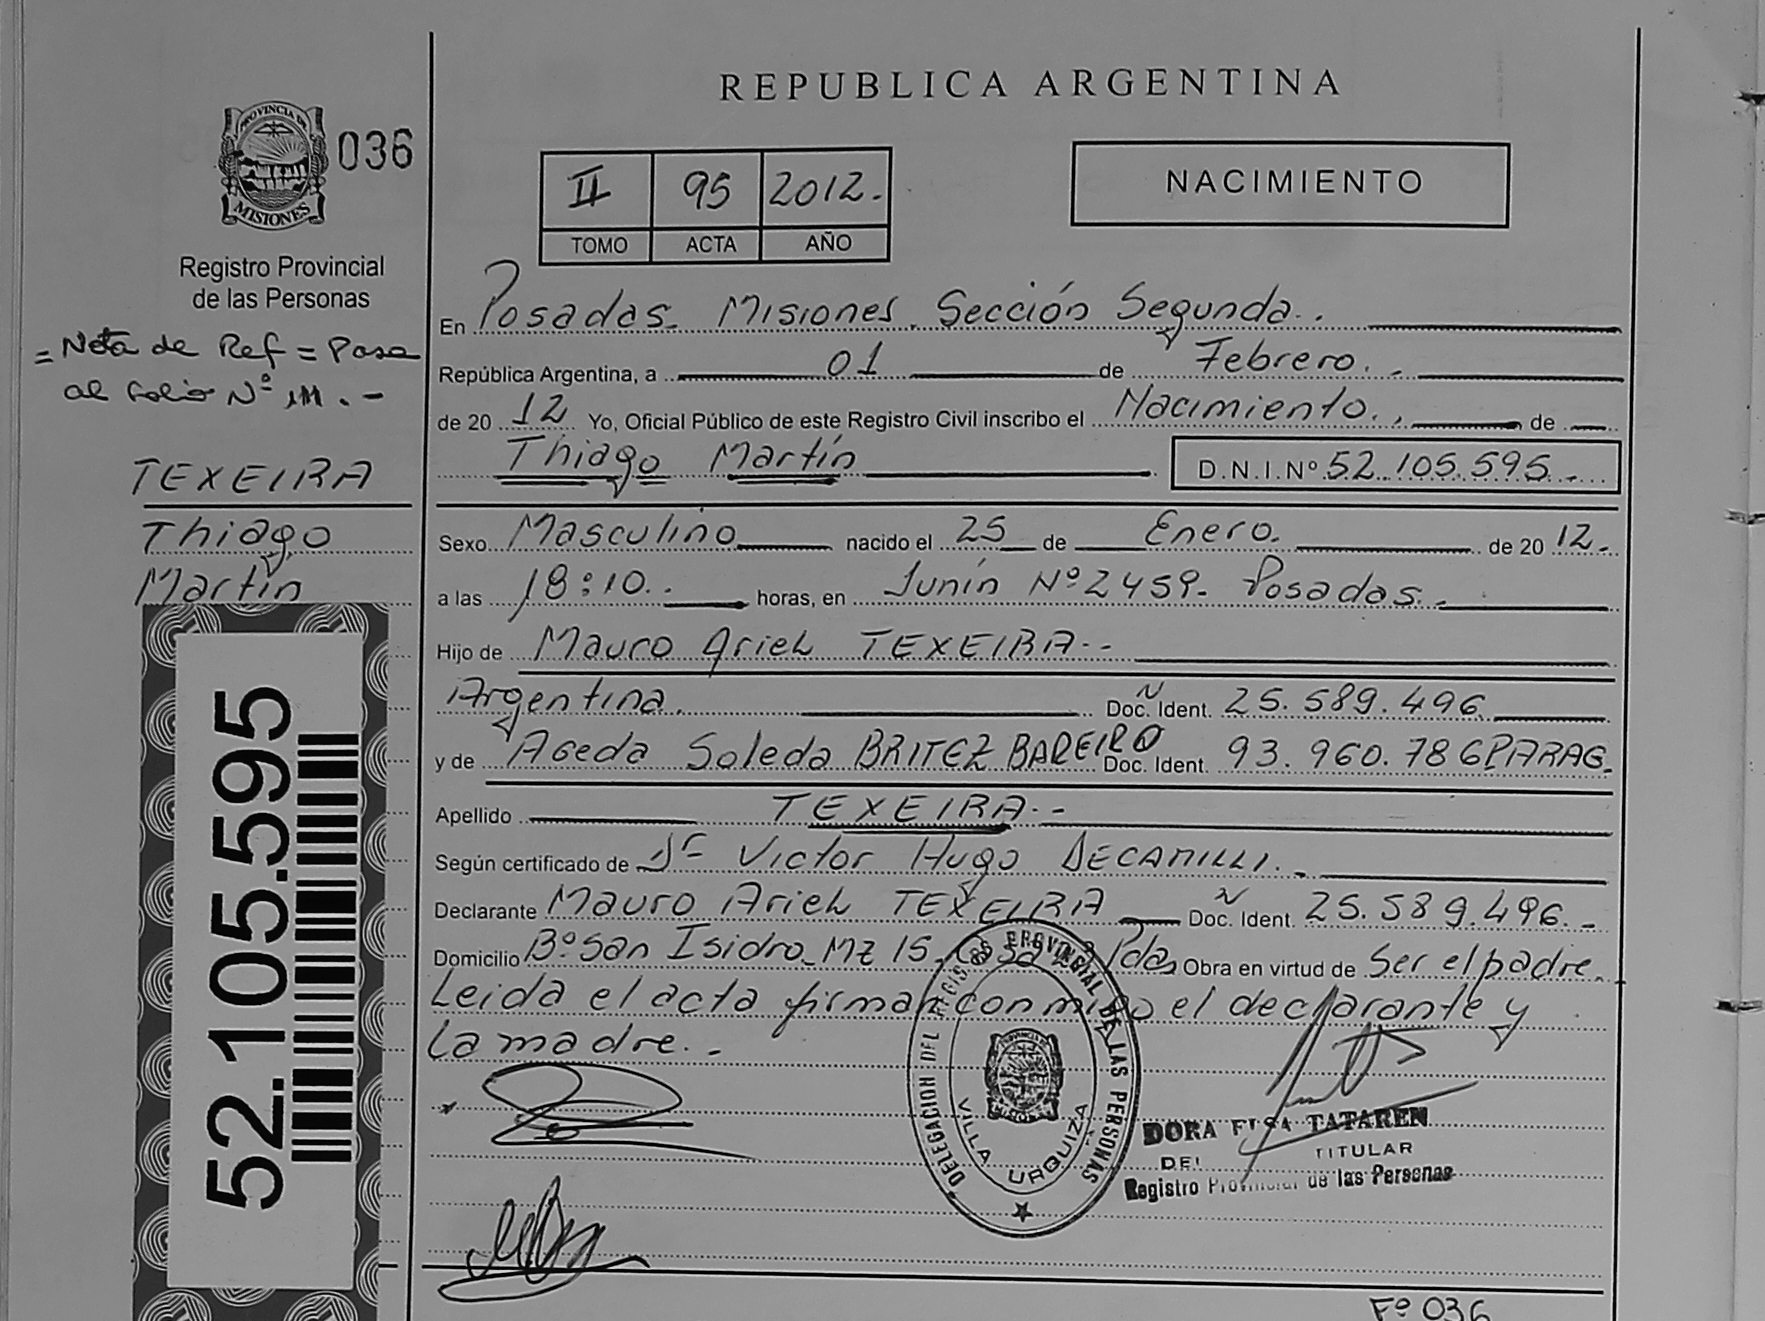 REPUBLICA ARGENTINA
PROVINCIA DE
MISIONES
036
II 95 2012.
TOMO ACTA AÑO
NACIMIENTO
Registro Provincial
de las Personas
= Nota de Ref = Pasa
al folio Nº
TEXEIRA
Thiago
Martín
52.105.595
En Posadas. Misiones. Sección Segunda.
República Argentina, a 01 de Febrero.
de 20 12 Yo, Oficial Público de este Registro Civil inscribo el Nacimiento. de
Thiago Martín D.N.I.Nº 52.105.595.
Sexo Masculino nacido el 25 de Enero. de 20 12.
a las 18:10. horas, en Junín Nº 2459. Posadas.
Hijo de Mauro Ariel TEXEIRA.
Argentina. Doc. Ident. 25.589.496
y de Ageda Soleda BRITEZ BAREIRO Doc. Ident. 93.960.786 PARAG.
Apellido TEXEIRA.
Según certificado de Dr Victor Hugo DECAMILLI.
Declarante Mauro Ariel TEXEIRA Doc. Ident. 25.589.496.
Domicilio Bº San Isidro Mz 15 Casa Pdas Obra en virtud de Ser el padre.
Leida el acta firman conmigo el declarante y
la madre.
DELEGACION DEL REGISTRO PROVINCIAL DE LAS PERSONAS
VILLA URQUIZA
DORA ELSA TATAREN
TITULAR
Registro Provincial de las Personas
Fº 036